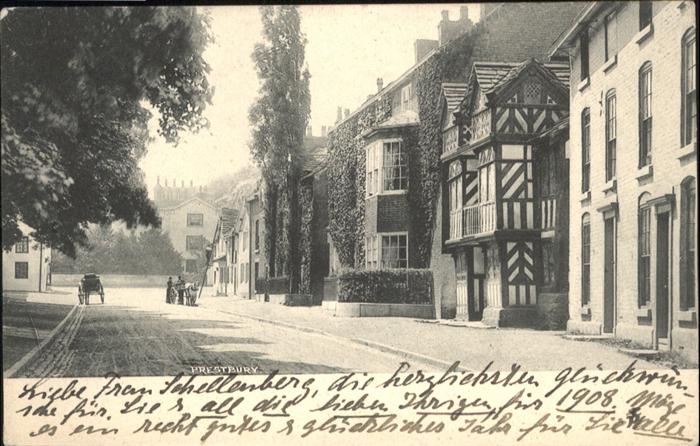 PRESTBURY
Liebe Frau Schellenberg, die herzlichsten Glückwün-
sche für Sie & all die lieben Ihrigen für 1908. Möge
es ein recht gutes & glückliches Jahr für Sie alle